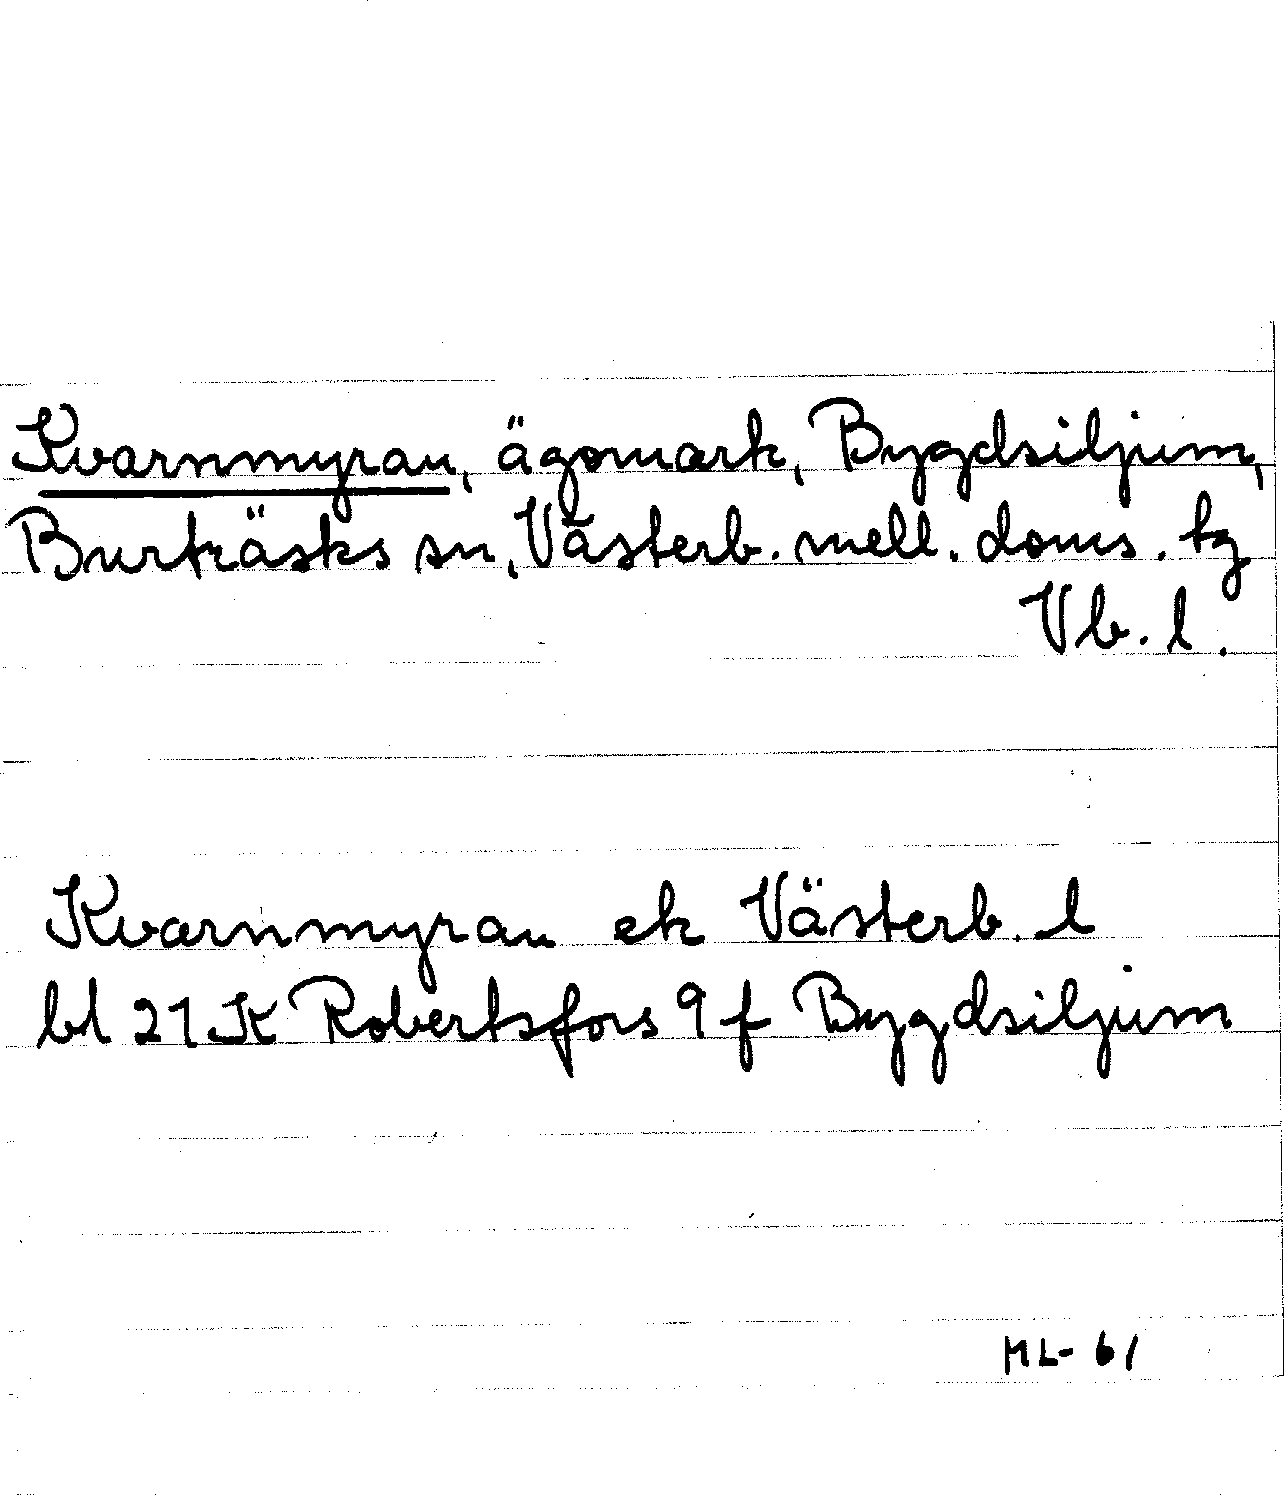 Kvarnmyran, ägomark, Bygdsiljum,
Burträsks sn, Västerb. mell. doms. tg
Vb. l.
Kvarnmyran ek Västerb. l
bl 21 K Robertsfors 9 f Bygdsiljum
ML- 61